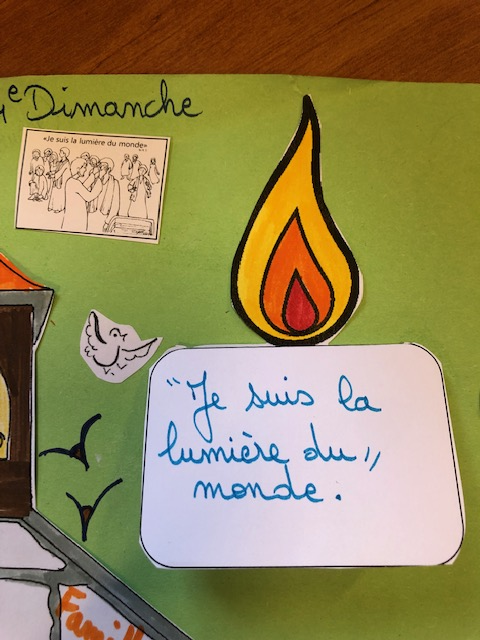 4e Dimanche
«Je suis la lumière du monde»
"Je suis la
lumière du"
monde.
Famill